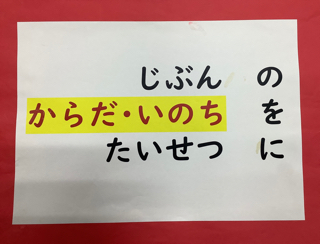 じぶんの
からだ・いのちを
たいせつに